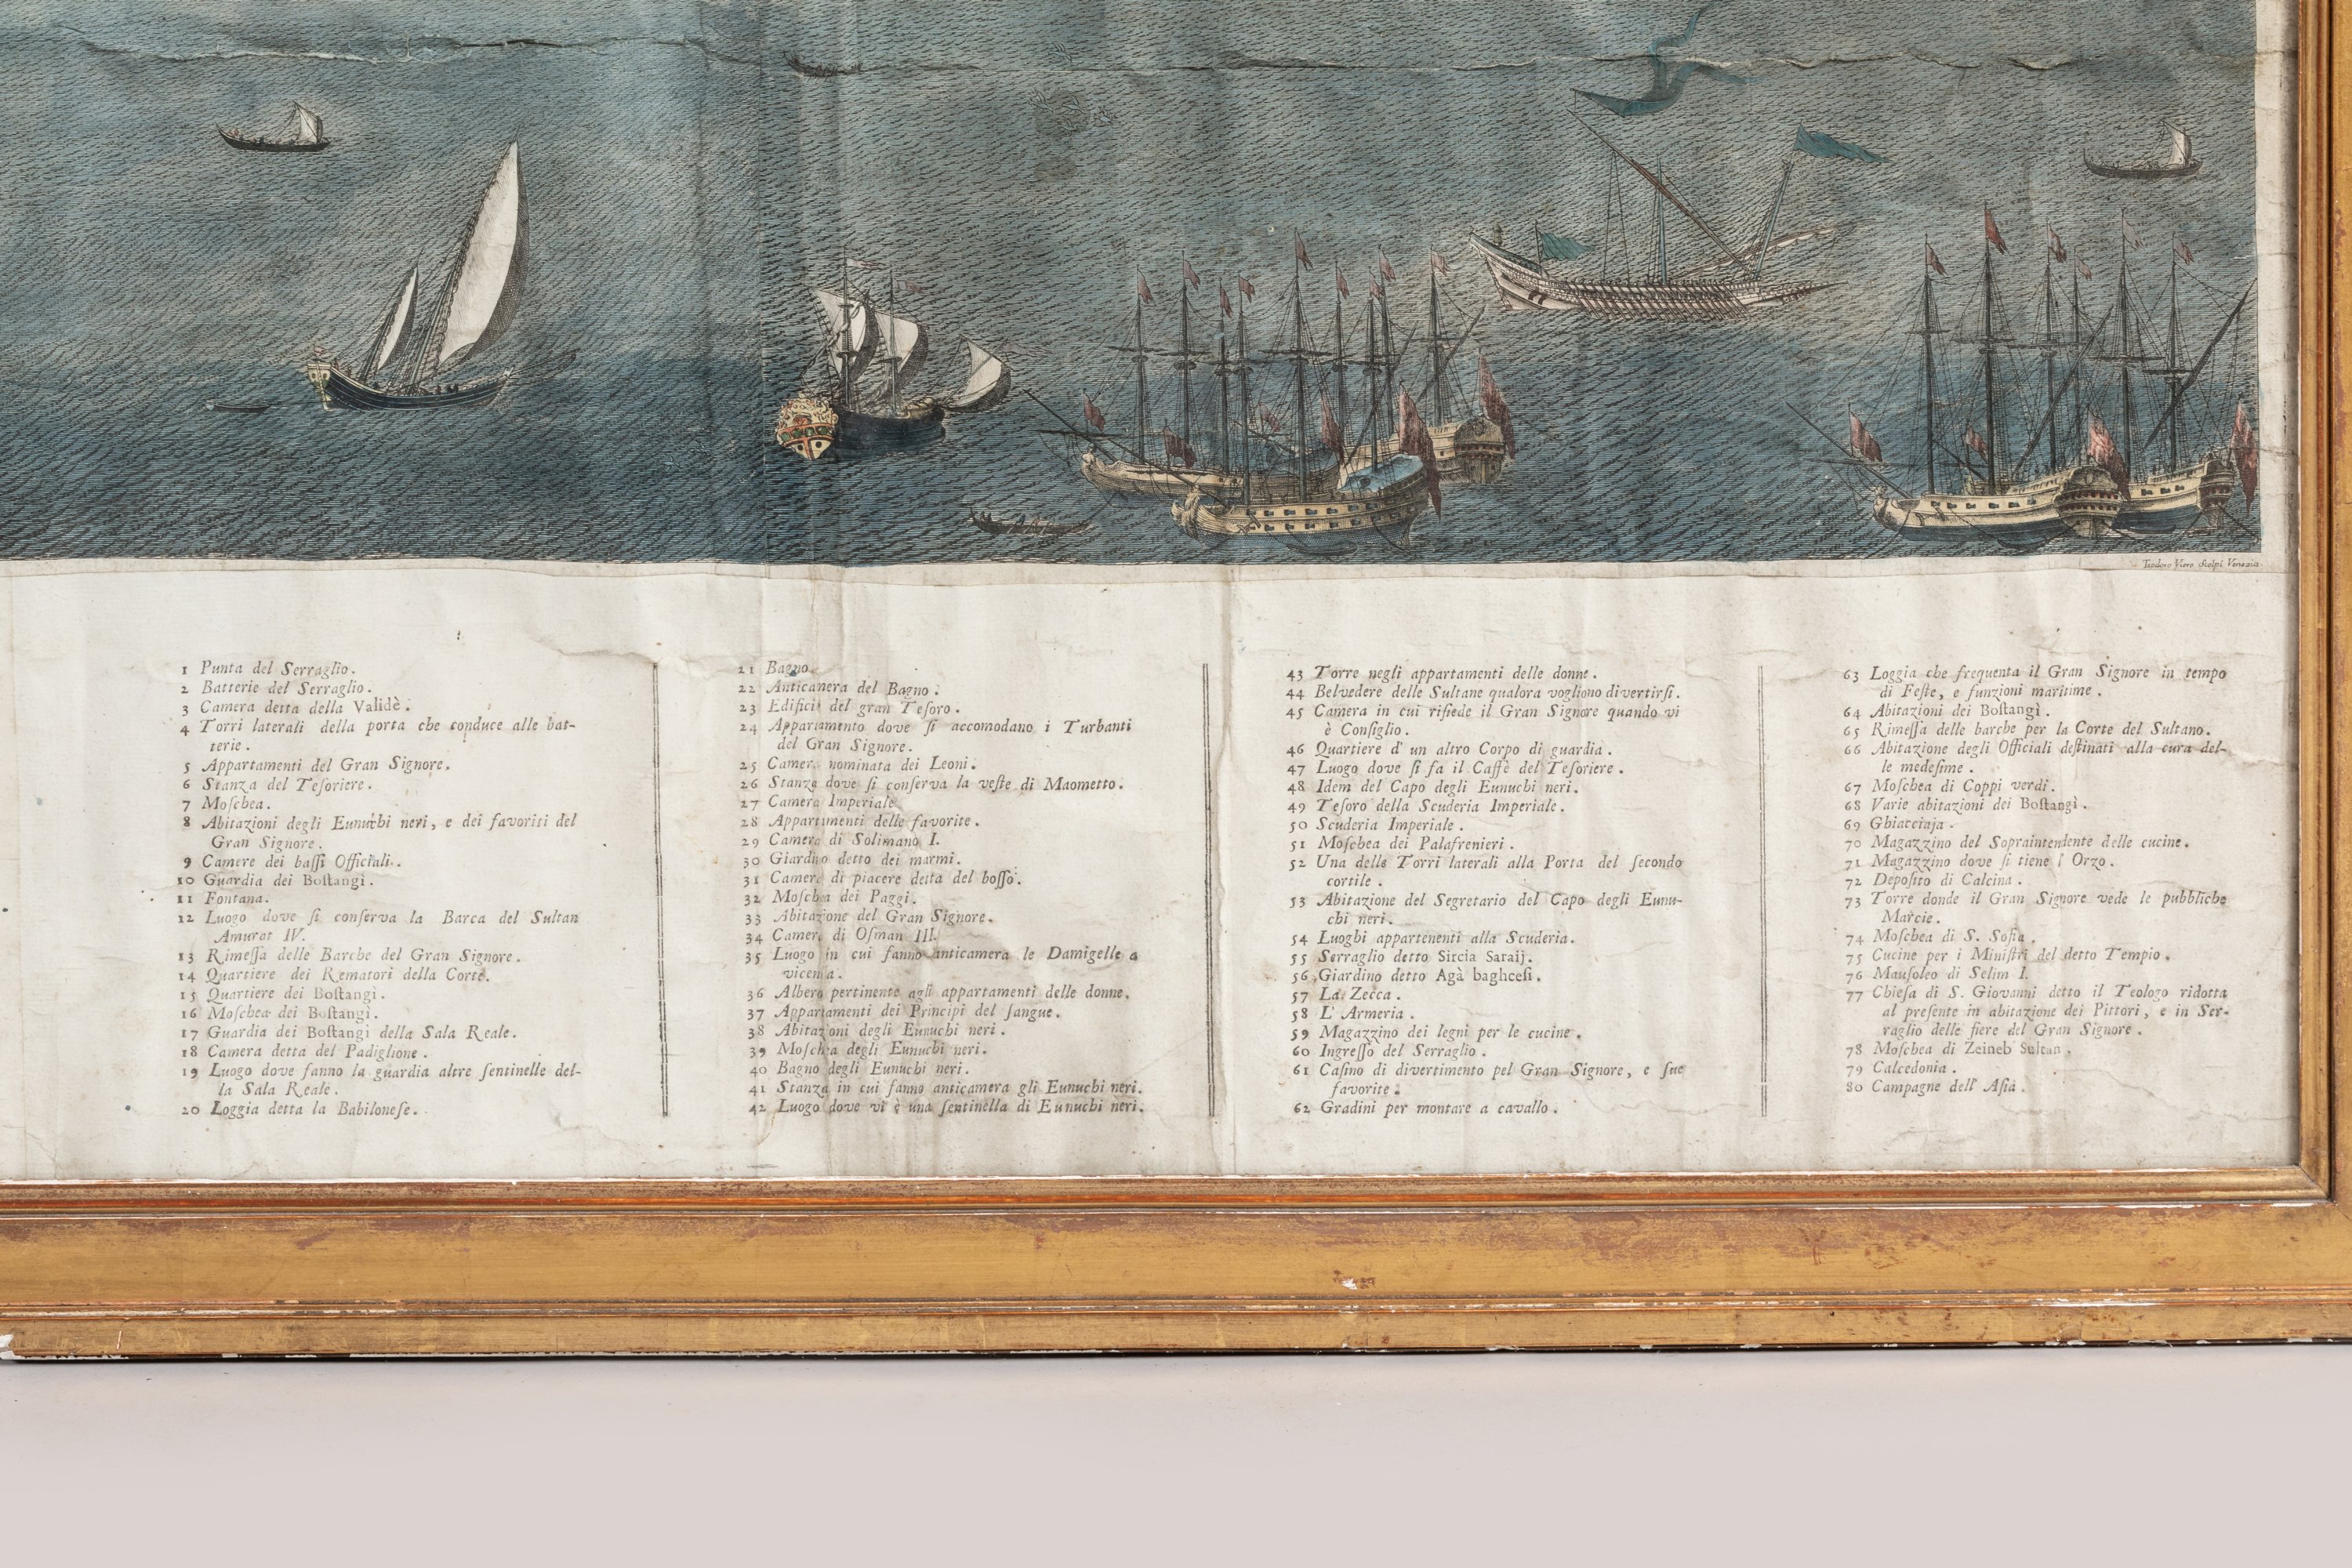 Teodoro Viero Scolpi Venezia
1 Punta del Serraglio.
2 Batterie del Serraglio.
3 Camera detta della Validè.
4 Torri laterali della porta che conduce alle bat-
terie.
5 Appartamenti del Gran Signore.
6 Stanza del Teſoriere.
7 Moſchea.
8 Abitazioni degli Eunuchi neri, e dei favoriti del
Gran Signore.
9 Camere dei baſſi Officiali.
10 Guardia dei Boſtangì.
11 Fontana.
12 Luogo dove ſi conſerva la Barca del Sultan
Amurat IV.
13 Rimeſſa delle Barche del Gran Signore.
14 Quartiere dei Rematori della Corte.
15 Quartiere dei Boſtangì.
16 Moſchea dei Boſtangì.
17 Guardia dei Boſtangì della Sala Reale.
18 Camera detta del Padiglione.
19 Luogo dove fanno la guardia altre ſentinelle del-
la Sala Reale.
20 Loggia detta la Babiloneſe.
21 Bagno.
22 Anticamera del Bagno.
23 Edifici del gran Teſoro.
24 Appartamento dove ſi accomodano i Turbanti
del Gran Signore.
25 Camera nominata dei Leoni.
26 Stanza dove ſi conſerva la veſte di Maometto.
27 Camera Imperiale
28 Appartamenti delle favorite.
29 Camera di Solimano I.
30 Giardino detto dei marmi.
31 Camera di piacere detta del boſſo.
32 Moſchea dei Paggi.
33 Abitazione del Gran Signore.
34 Camera di Oſman III.
35 Luogo in cui fanno anticamera le Damigelle a
vicenda.
36 Albero pertinente agli appartamenti delle donne.
37 Appartamenti dei Principi del ſangue.
38 Abitazioni degli Eunuchi neri.
39 Moſchea degli Eunuchi neri.
40 Bagno degli Eunuchi neri.
41 Stanza in cui fanno anticamera gli Eunuchi neri.
42 Luogo dove vi è una ſentinella di Eunuchi neri.
43 Torre negli appartamenti delle donne.
44 Belvedere delle Sultane qualora vogliono divertirſi.
45 Camera in cui riſiede il Gran Signore quando vi
è Conſiglio.
46 Quartiere d' un altro Corpo di guardia.
47 Luogo dove ſi fa il Caffè del Teſoriere.
48 Idem del Capo degli Eunuchi neri.
49 Teſoro della Scuderia Imperiale.
50 Scuderia Imperiale.
51 Moſchea dei Palafrenieri.
52 Una delle Torri laterali alla Porta del ſecondo
cortile.
53 Abitazione del Segretario del Capo degli Eunu-
chi neri.
54 Luoghi appartenenti alla Scuderia.
55 Serraglio detto Sircia Saraij.
56 Giardino detto Agà baghceſi.
57 La Zecca.
58 L' Armeria.
59 Magazzino dei legni per le cucine.
60 Ingreſſo del Serraglio.
61 Caſino di divertimento pel Gran Signore, e ſue
favorite.
62 Gradini per montare a cavallo.
63 Loggia che frequenta il Gran Signore in tempo
di Feſte, e funzioni marìtime.
64 Abitazioni dei Boſtangì.
65 Rimeſſa delle barche per la Corte del Sultano.
66 Abitazione degli Officiali deſtinati alla cura del-
le medeſime.
67 Moſchea di Coppi verdi.
68 Varie abitazioni dei Boſtangì.
69 Ghiacciaja.
70 Magazzino del Sopraintendente delle cucine.
71 Magazzino dove ſi tiene l' Orzo.
72 Depoſito di Calcina.
73 Torre donde il Gran Signore vede le pubbliche
Marcie.
74 Moſchea di S. Sofia.
75 Cucine per i Miniſtri del detto Tempio.
76 Mauſoleo di Selim I.
77 Chieſa di S. Giovanni detto il Teologo ridotta
al preſente in abitazione dei Pittori, e in Ser-
raglio delle fiere del Gran Signore.
78 Moſchea di Zeineb Sultan.
79 Calcedonia.
80 Campagne dell' Aſia.